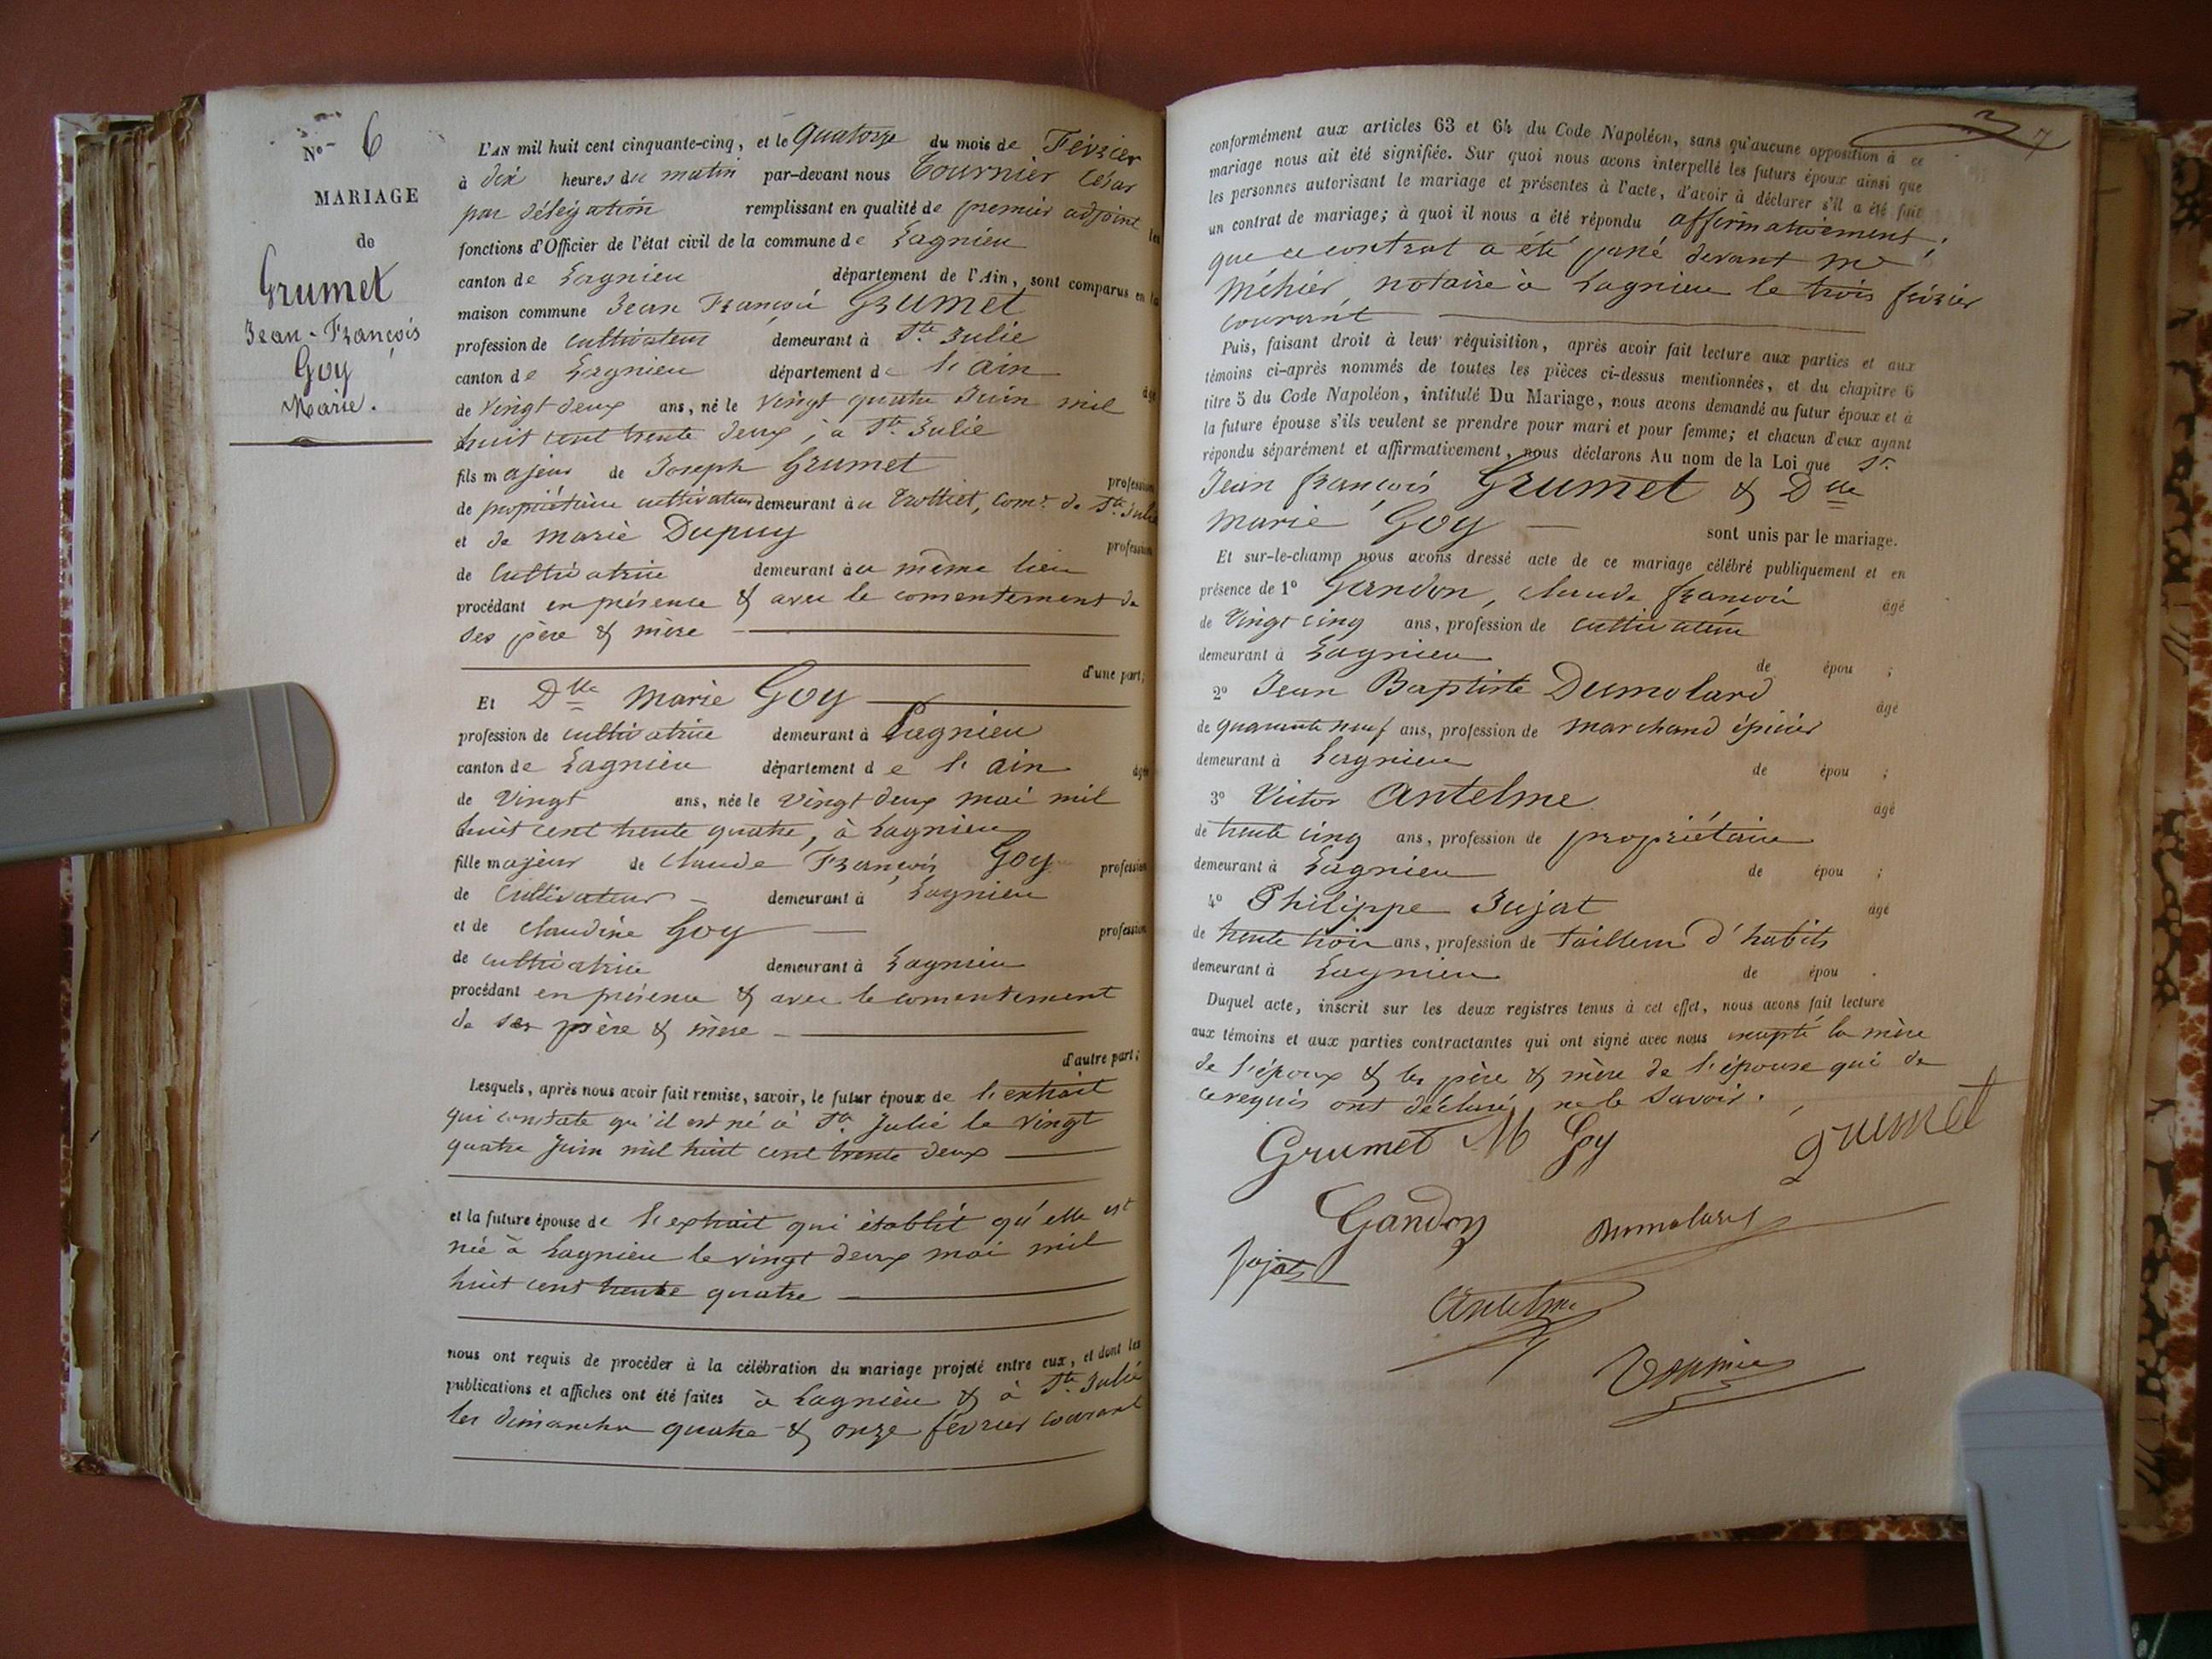 No 6
MARIAGE
de
Grumet
Jean-François
Goy
Marie.
L'AN mil huit cent cinquante-cinq, et le quatorze du mois de Février
à dix heures du matin par-devant nous Tournier César
par délégation remplissant en qualité de premier adjoint les
fonctions d'Officier de l'état civil de la commune de Lagnieu
canton de Lagnieu département de l'Ain, sont comparus en la
maison commune Jean François Grumet
profession de cultivateur demeurant à Ste Julie
canton de Lagnieu département de l'ain âgé
de vingt deux ans, né le vingt quatre Juin mil
huit cent trente deux, à Ste Julie
fils majeur de Joseph Grumet profession
de propriétaire cultivateur demeurant au Trottiet, come de Ste Julie
et de Marie Dupuy profession
de cultivatrice demeurant au même lieu
procédant en présence & avec le consentement de
ses père & mère
d'une part;
Et Dlle Marie Goy
profession de cultivatrice demeurant à Lagnieu
canton de Lagnieu département de l'ain âgée
de vingt ans, née le vingt deux mai mil
huit cent trente quatre, à Lagnieu
fille majeur de Claude François Goy profession
de cultivateur demeurant à Lagnieu
et de Claudine Goy profession
de cultivatrice demeurant à Lagnieu
procédant en présence & avec le consentement
de ses père & mère
d'autre part;
Lesquels, après nous avoir fait remise, savoir, le futur époux de l'extrait
qui constate qu'il est né à Ste Julie le vingt
quatre Juin mil huit cent trente deux
et la future épouse de l'extrait qui établit qu'elle est
née à Lagnieu le vingt deux mai mil
huit cent trente quatre
nous ont requis de procéder à la célébration du mariage projeté entre eux, et dont les
publications et affiches ont été faites à Lagnieu & à Ste Julie
les dimanches quatre & onze février courant
7
conformément aux articles 63 et 64 du Code Napoléon, sans qu'aucune opposition à ce
mariage nous ait été signifiée. Sur quoi nous avons interpellé les futurs époux ainsi que
les personnes autorisant le mariage et présentes à l'acte, d'avoir à déclarer s'il a été fait
un contrat de mariage; à quoi il nous a été répondu affirmativement;
que ce contrat a été passé devant Me
Méhier, notaire à Lagnieu le trois février
courant
Puis, faisant droit à leur réquisition, après avoir fait lecture aux parties et aux
témoins ci-après nommés de toutes les pièces ci-dessus mentionnées, et du chapitre 6
titre 5 du Code Napoléon, intitulé Du Mariage, nous avons demandé au futur époux et à
la future épouse s'ils veulent se prendre pour mari et pour femme; et chacun d'eux ayant
répondu séparément et affirmativement, nous déclarons Au nom de la Loi que Sr
Jean François Grumet & Dlle
Marie Goy sont unis par le mariage.
Et sur-le-champ nous avons dressé acte de ce mariage célébré publiquement et en
présence de 1o Gandon, Claude François âgé
de vingt cinq ans, profession de cultivateur
demeurant à Lagnieu de épou ;
2o Jean Baptiste Dumolard âgé
de quarante neuf ans, profession de marchand épicier
demeurant à Lagnieu de épou ;
3o Victor Antelme âgé
de trente cinq ans, profession de propriétaire
demeurant à Lagnieu de épou ;
4o Philippe Jujat âgé
de trente trois ans, profession de Tailleur d'habits
demeurant à Lagnieu de épou .
Duquel acte, inscrit sur les deux registres tenus à cet effet, nous avons fait lecture
aux témoins et aux parties contractantes qui ont signé avec nous excepté la mère
de l'époux & les père & mère de l'épouse qui de
ce requis ont déclaré ne le savoir.
Grumet M Goy grumet
Gandon Dumolard
Jujat
Antelme
Tournier